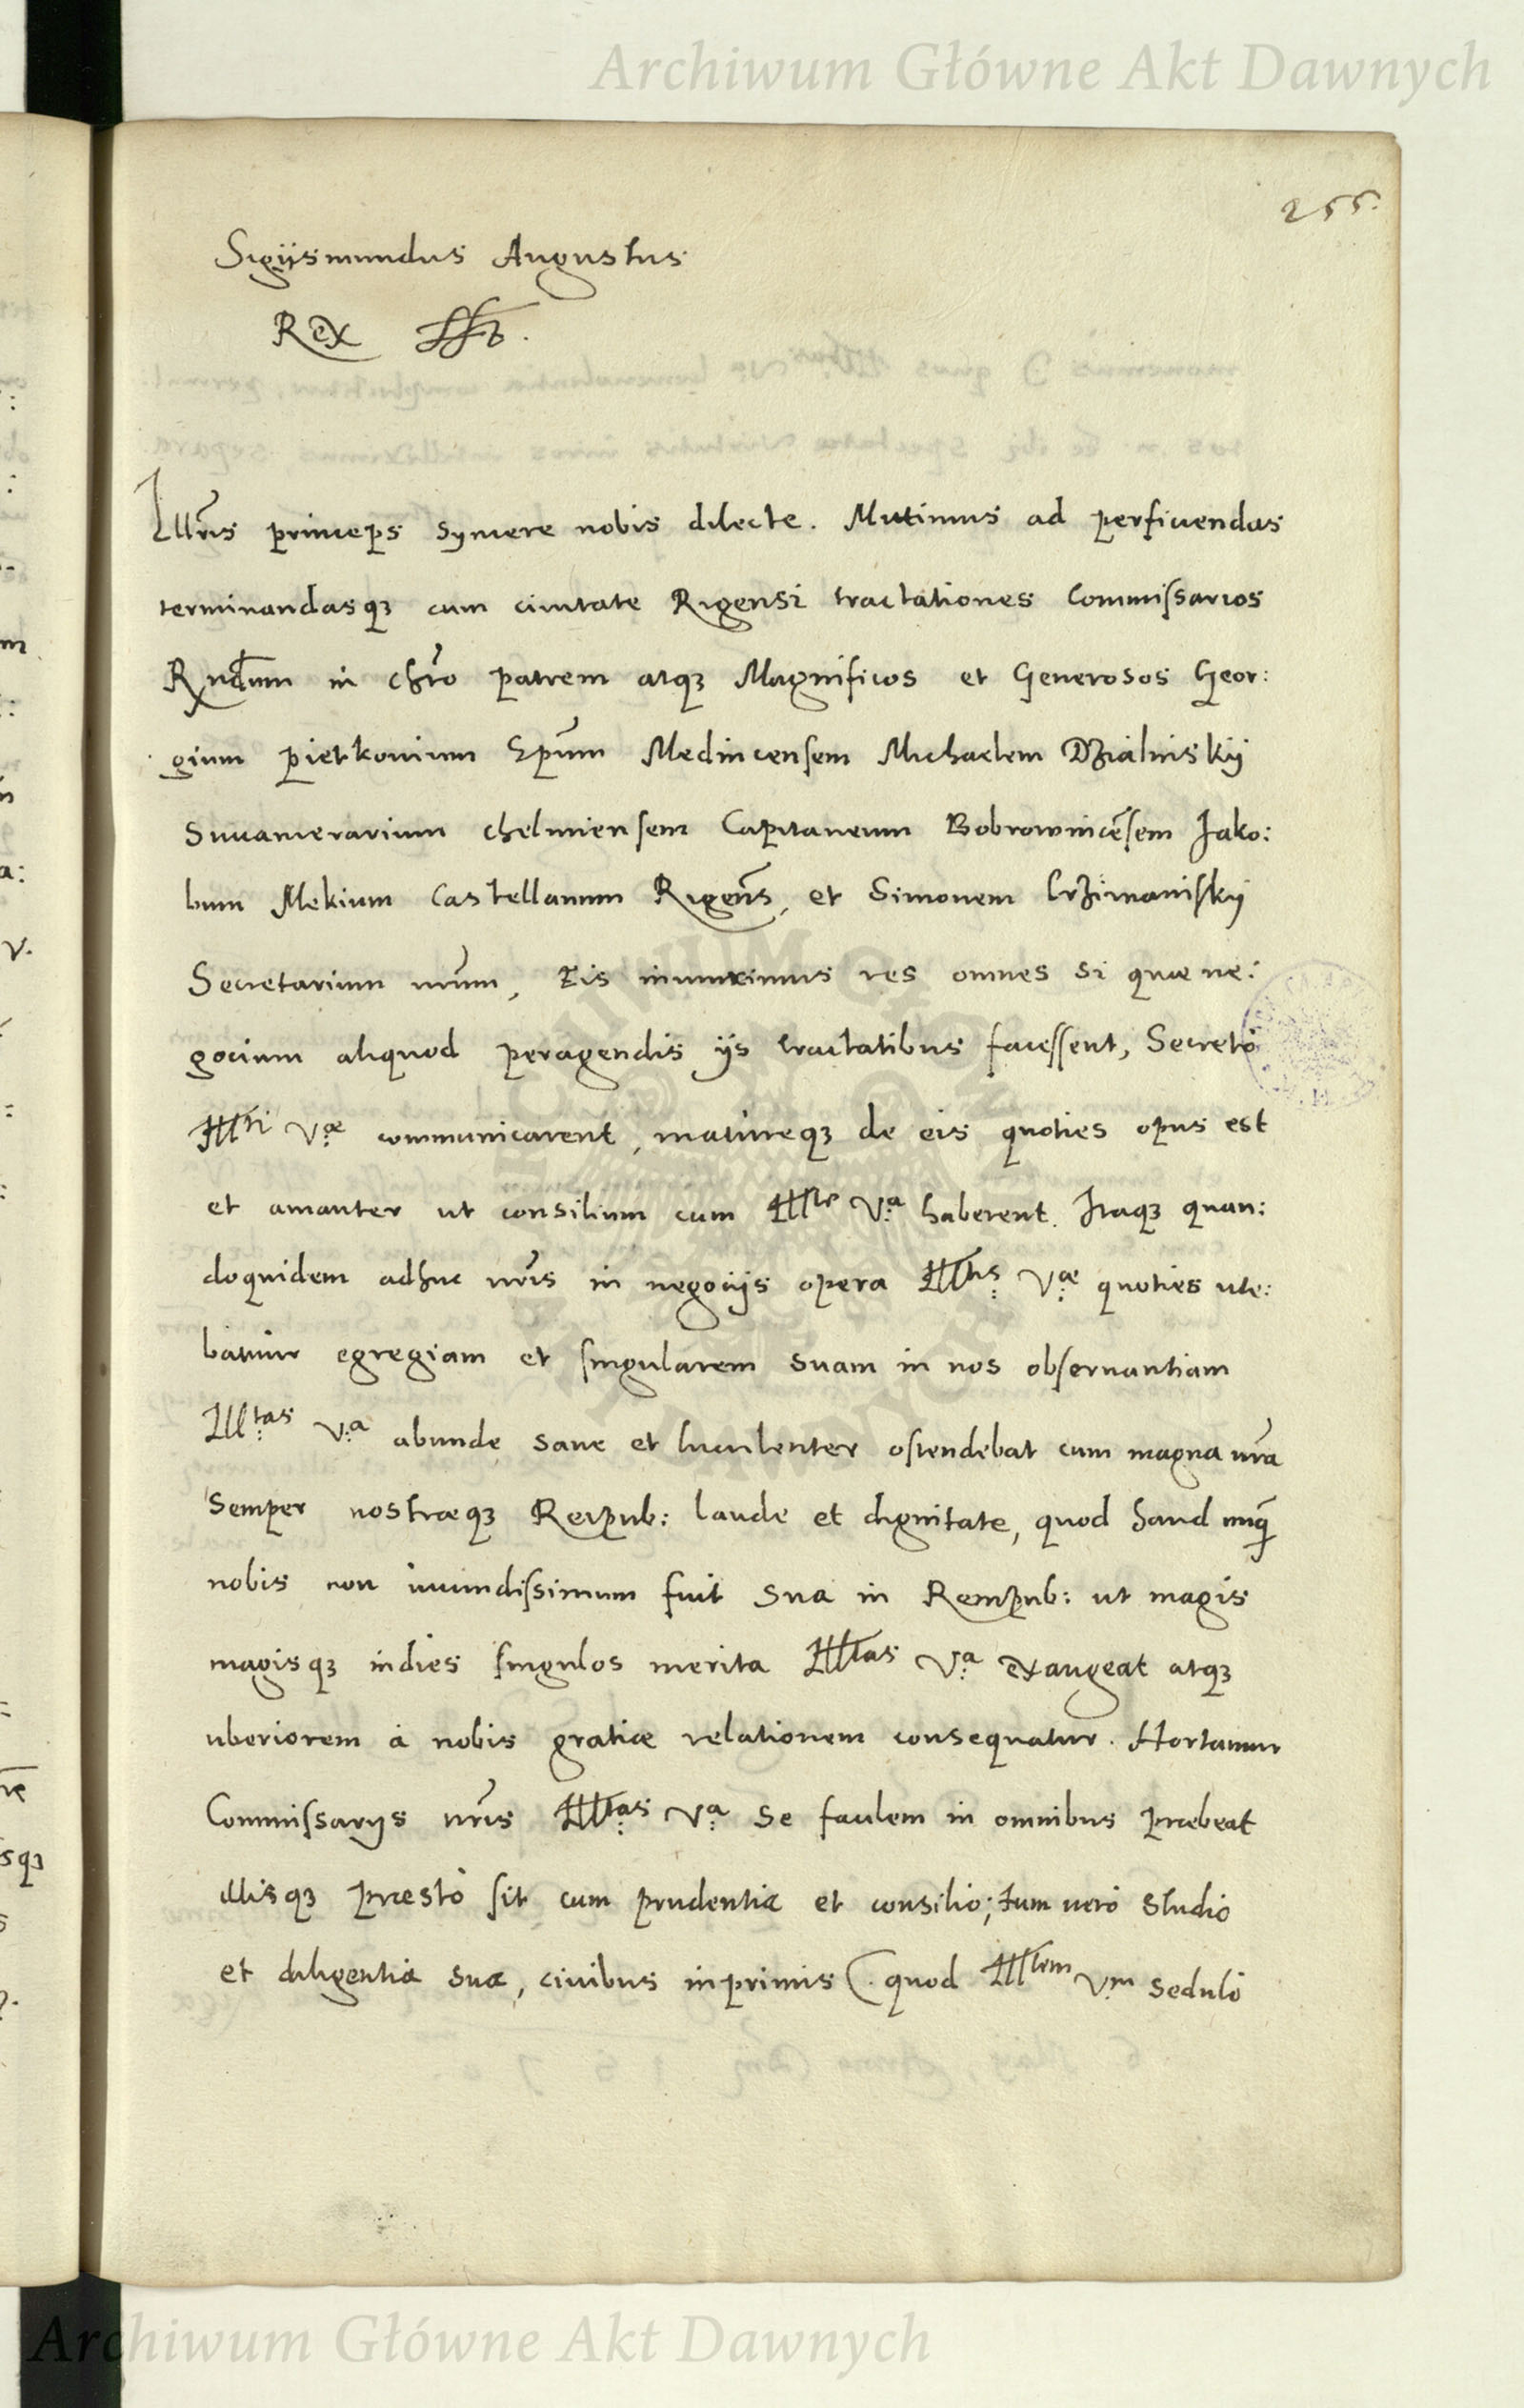 Archiwum Główne Akt Dawnych
255.
Sigijsmundus Augustus
Rex
Illr̄is princeps syncere nobis dilecte. Mittimus ad perficiendas
terminandasqꝫ cum ciuitate Rigensi tractationes Commissarios
Rndum in chr̄o patrem atqꝫ Magnificos et Generosos Geor:
gium pietkouium Ep̄um Medincensem Michaelem Dzialinskij
Succamerarium chelmiensem Capitaneum Bobrownicēsem Jako:
bum Mekium Castellanum Rigens̄, et Simonem
Secretarium nr̄um, Eis iniunximus res omnes si quae ne:
gocium aliquod peragendis ijs tractatibus facessent, Secretò
Illri Vae communicarent, matureqꝫ de eis quoties opus est
et amanter ut consilium cum Illte Va haberent. Itaqꝫ quan:
doquidem adhuc nr̄is in negocijs opera Illtis Vae quoties ute:
bamur egregiam et singularem suam in nos obseruantiam
Illtas Va abunde sane et luculenter ostendebat cum magna nr̄a
semper nostraeqꝫ Reipub: laude et dignitate, quod haud nunq̄
nobis non iucundissimum fuit sua in Rempub: ut magis
magisqꝫ indies singulos merita Illtas Va exaugeat atqꝫ
uberiorem à nobis gratiae relationem consequatur. Hortamur
Commissarijs nr̄is Illtas Va se facilem in omnibus praebeat
illisqꝫ praestò sit cum prudentia et consilio; tum uerò studio
et diligentia sua, ciuibus inprimis (. quod Illtem Vm sedulò
Archiwum Główne Akt Dawnych